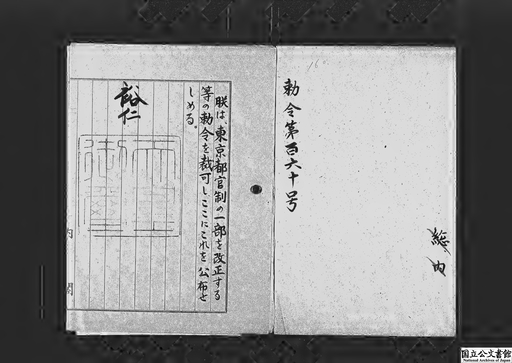 勅令第百六十号
総
内
朕は、東京都官制の一部を改正する
等の勅令を裁可し、ここにこれを公布せ
しめる。
裕仁
内閣
国立公文書館
National Archives of Japan